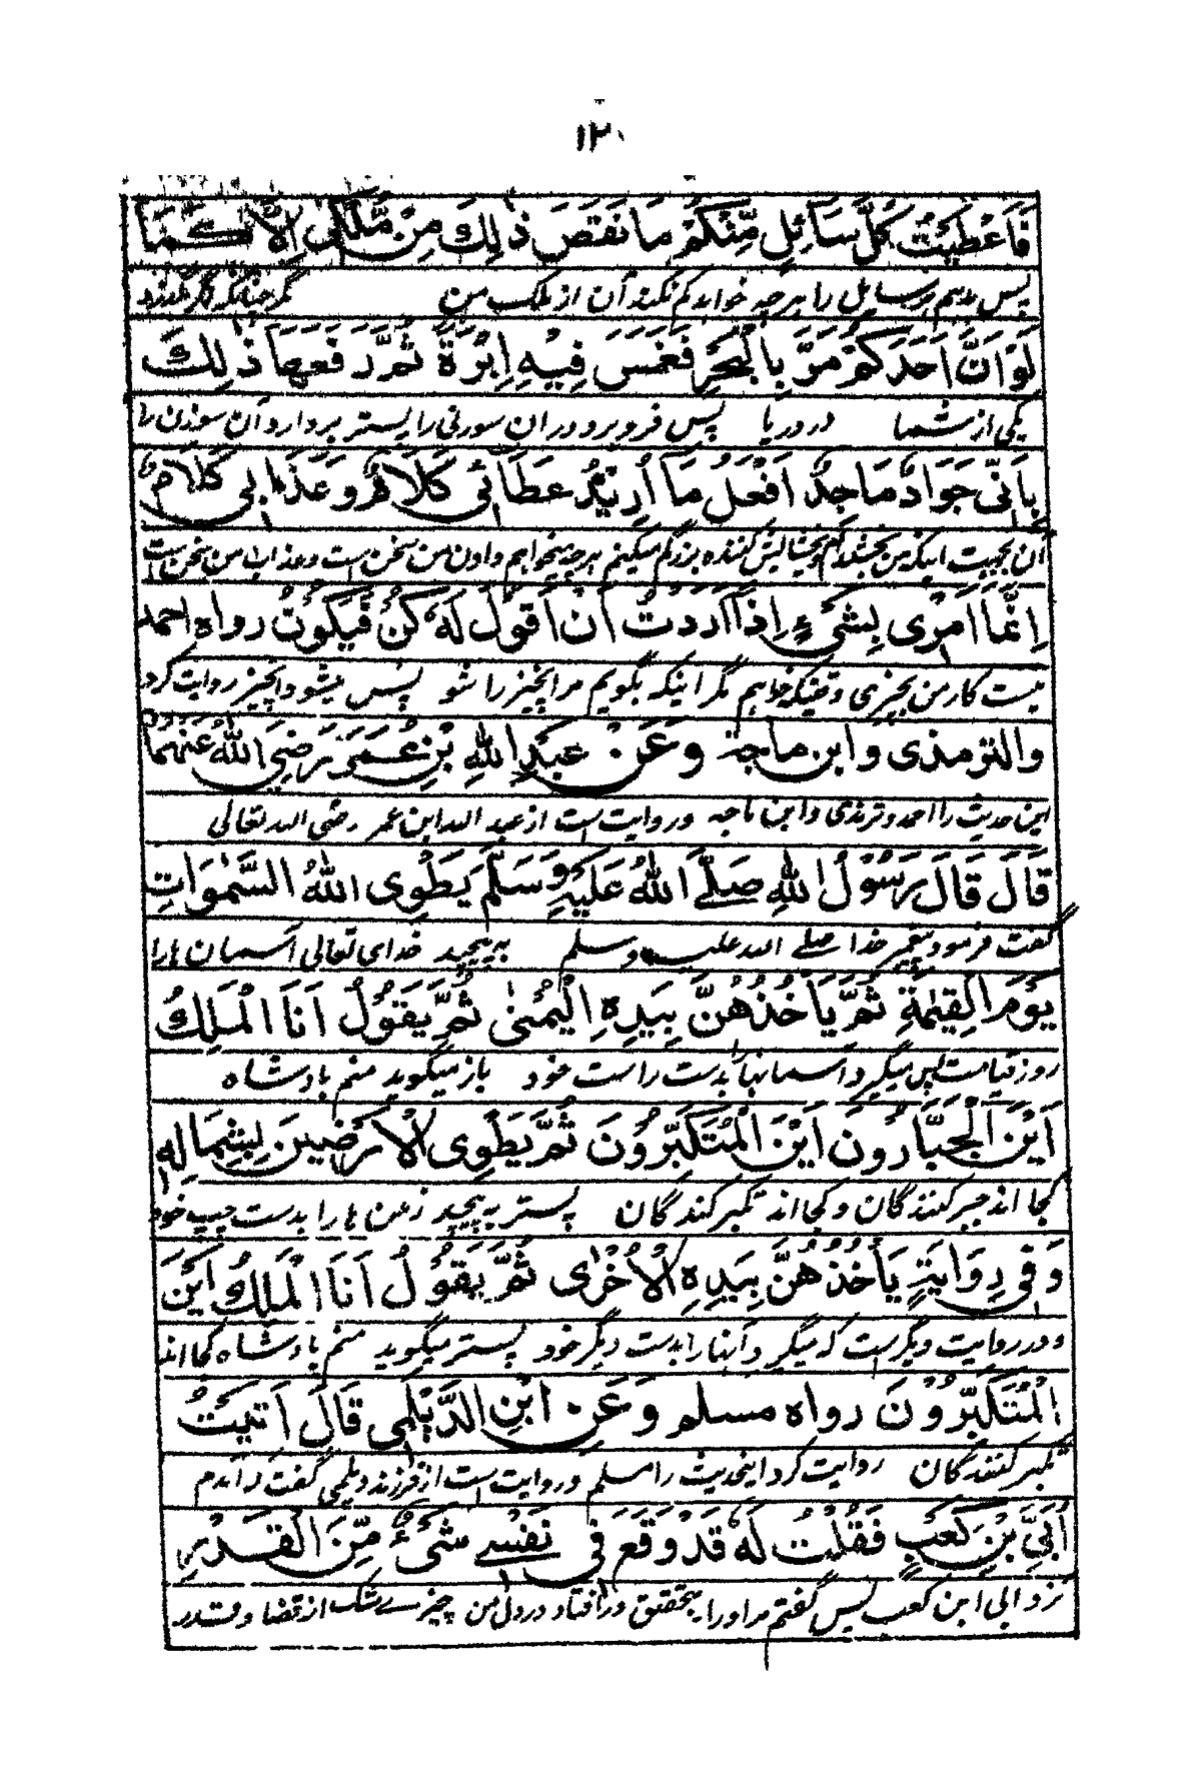 ١٢٠
فَاَعْطَيْتُ كُلَّ سَائِلٍ مِّنْكُمْ مَا نَقَصَ ذٰلِكَ مِنْ مُّلْكِىْ اِلَّا كَمَا
پس بدهم هر سایل را هرچه خواهد کم نکند آن از ملک من مگر چنانکه اگر بگذرد
لَوْ اَنَّ اَحَدَكُمْ مَرَّ بِالْبَحْرِ فَغَمَسَ فِيْهِ اِبْرَةً ثُمَّ رَفَعَهَا ذٰلِكَ
یکی از شما در دریا پس فرو برد دران سوزنی را پستر بردارد آن سوزن را
بِاَنِّىْ جَوَادٌ مَاجِدٌ اَفْعَلُ مَا اُرِيْدُ عَطَائِىْ كَلَامٌ وَعَذَابِىْ كَلَامٌ
آن بجهت اینکه من بخشنده‌ام و بخشایش کننده بزرگم میکنم هرچه میخواهم دادن من سخن است و عذاب من سخن است
اِنَّمَا اَمْرِىْ بِشَىْءٍ اِذَا اَرَدْتُ اَنْ اَقُوْلَ لَهٗ كُنْ فَيَكُوْنُ رواه احمد
نیست کار من بچیزی وقتیکه خواهم مگر اینکه بگویم مر آنچیز را شو پس میشود آنچیز روایت کرد
والترمذى وابن ماجة وَعَنْ عَبْدِ اللهِ بْنِ عُمَرَ رَضِىَ اللهُ عَنْهُمَا
این حدیث را احمد و ترمذی و ابن ماجه و روایت است از عبد الله ابن عمر رضی الله تعالی
قَالَ قَالَ رَسُوْلُ اللهِ صَلَّى اللهُ عَلَيْهِ وَسَلَّمَ يَطْوِى اللهُ السَّمٰوَاتِ
گفت فرمود پیغمبر خدا صلی الله علیه وسلم به پیچید خدای تعالی آسمان ها را
يَوْمَ الْقِيٰمَةِ ثُمَّ يَاْخُذُهُنَّ بِيَدِهِ الْيُمْنٰى ثُمَّ يَقُوْلُ اَنَا الْمَلِكُ
روز قیامت پس میگیرد آسمانها بدست راست خود باز میگوید منم بادشاه
اَيْنَ الْجَبَّارُوْنَ اَيْنَ الْمُتَكَبِّرُوْنَ ثُمَّ يَطْوِى الْاَرَضِيْنَ بِشِمَالِهٖ
کجا اند جبر کنندگان و کجا اند تکبر کنندگان پستر به پیچید زمین ها را بدست چپ خود
وَفِىْ رِوَايَةٍ يَاْخُذُهُنَّ بِيَدِهِ الْاُخْرٰى ثُمَّ يَقُوْلُ اَنَا الْمَلِكُ اَيْنَ
و در روایت دیگر است که میگیرد آنها را بدست دیگر خود پستر میگوید منم بادشاه کجا اند
الْمُتَكَبِّرُوْنَ رواه مسلم وَعَنْ ابْنِ الدَّيْلَمِى قَالَ اَتَيْتُ
تکبر کنندگان روایت کرد اینحدیث را مسلم و روایت است از فرزند دیلمی گفت در آمدم
اُبَىَّ بْنَ كَعْبٍ فَقُلْتُ لَهٗ قَدْ وَقَعَ فِىْ نَفْسِىْ شَىْءٌ مِّنَ الْقَدْرِ
نزد ابی ابن کعب پس گفتم مر او را بتحقیق در افتاد در دل من چیزے از شک از قضا و قدر